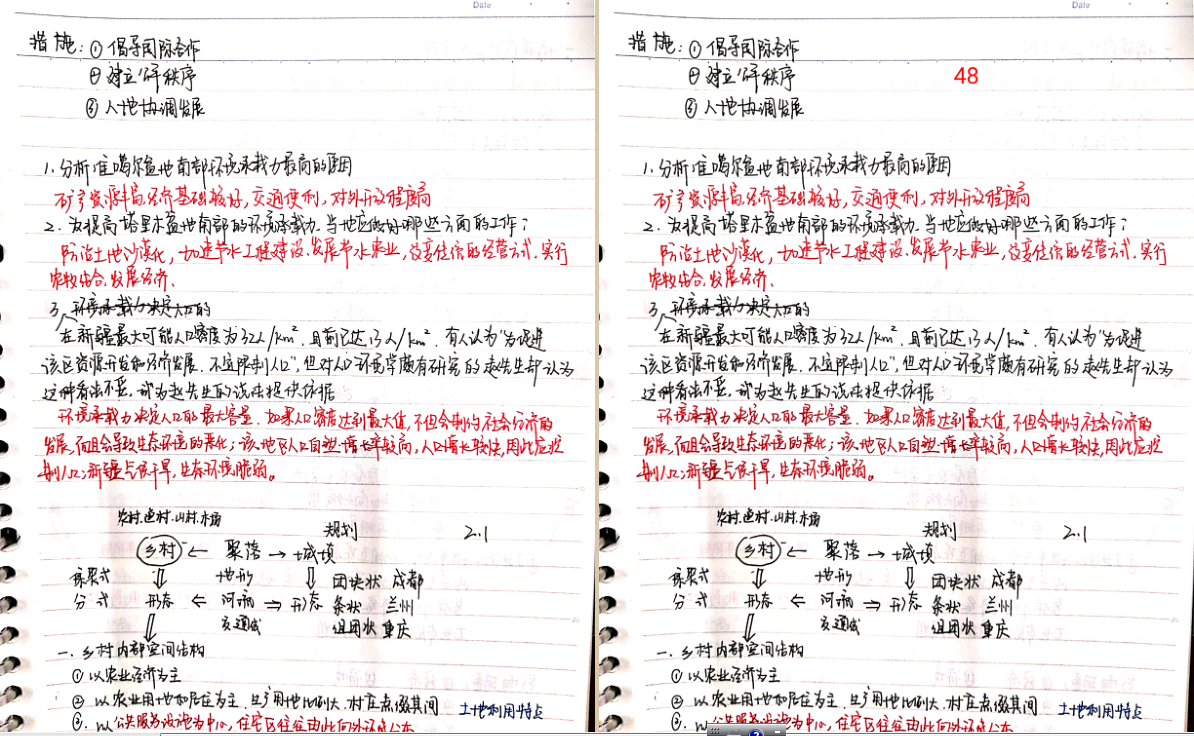 Date
措施：① 倡导国际合作
② 建立公平秩序
③ 人地协调发展
1. 分析准噶尔盆地南部环境承载力最高的原因
矿产资源丰富，经济基础较好，交通便利，对外开放程度高
2. 为提高塔里木盆地南部的环境承载力，当地应做好哪些方面的工作；
防治土地沙漠化，加速节水工程建设、发展节水农业，改变传统的经营方式，实行
农牧结合，发展经济、
3. 环境承载力决定人口的
在新疆最大可能人口密度为32人/km²，目前已达13人/km²，有人认为“为促进
该区资源开发和经济发展，不宜限制人口”，但对人口环境学颇有研究的赵先生却认为
这种看法不妥，试为赵先生的说法提供依据
环境承载力决定人口的最大容量，如果人口密度达到最大值，不但会制约社会经济的
发展，而且会导致生态环境的恶化；该地区人口自然增长率较高，人口增长较快，因此应控
制人口；新疆气候干旱，生态环境脆弱。
农村、渔村、山村、林场
规划
2.1
乡村 ← 聚落 → 城镇
地形
团块状 成都
分 式 形态 ← 河流 ⇒ 形态 条状 兰州
交通
组团状 重庆
一、乡村内部空间结构
① 以农业经济为主
② 以农业用地和居住为主，且农用地比例大，村庄点缀其间 土地利用特点
③、以公共服务设施为中心，住宅区往往由此向外环成分布
Date
措施：① 倡导国际合作
② 建立公平秩序
48
③ 人地协调发展
1. 分析准噶尔盆地南部环境承载力最高的原因
矿产资源丰富，经济基础较好，交通便利，对外开放程度高
2. 为提高塔里木盆地南部的环境承载力，当地应做好哪些方面的工作；
防治土地沙漠化，加速节水工程建设、发展节水农业，改变传统的经营方式，实行
农牧结合，发展经济、
3. 环境承载力决定人口的
在新疆最大可能人口密度为32人/km²，目前已达13人/km²，有人认为“为促进
该区资源开发和经济发展，不宜限制人口”，但对人口环境学颇有研究的赵先生却认为
这种看法不妥，试为赵先生的说法提供依据
环境承载力决定人口的最大容量，如果人口密度达到最大值，不但会制约社会经济的
发展，而且会导致生态环境的恶化；该地区人口自然增长率较高，人口增长较快，因此应控
制人口；新疆气候干旱，生态环境脆弱。
农村、渔村、山村、林场
规划
2.1
乡村 ← 聚落 → 城镇
地形
团块状 成都
分 式 形态 ← 河流 ⇒ 形态 条状 兰州
交通
组团状 重庆
一、乡村内部空间结构
① 以农业经济为主
② 以农业用地和居住为主，且农用地比例大，村庄点缀其间 土地利用特点
③、以公共服务设施为中心，住宅区往往由此向外环成分布